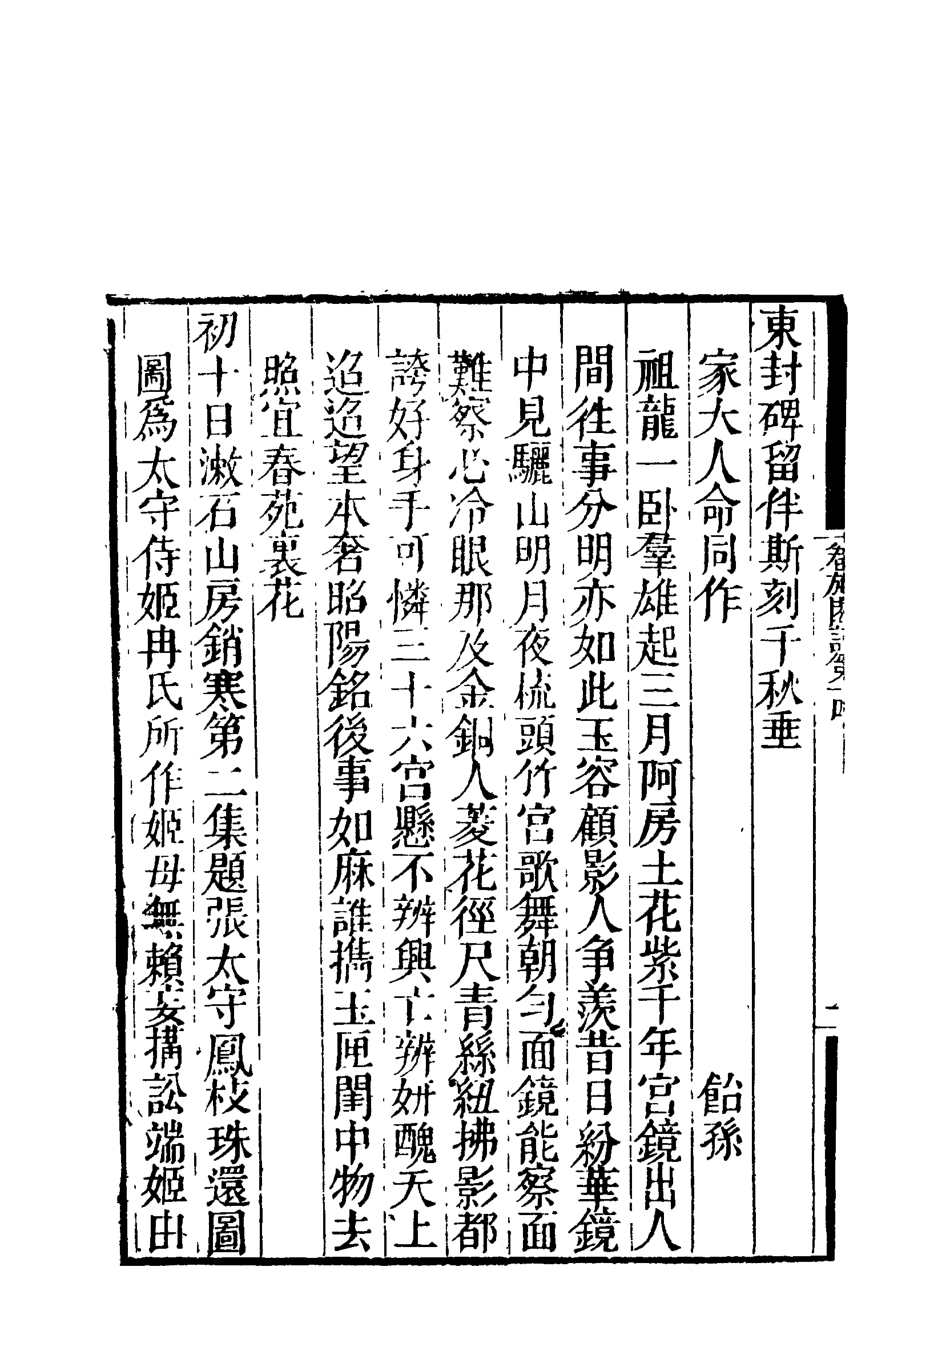 東封碑留伴斯刻千秋垂
家大人命同作　飴孫
祖龍一卧羣雄起三月阿房土花紫千年宮鏡出人
間徃事分明亦如此玉容顧影人争羨昔日紛華鏡
中見驪山明月夜梳頭竹宮歌舞朝勻面鏡能察面
難察心冷眼那及金銅人菱花徑尺青絲紐拂影都
誇好身手可憐三十六宮懸不辨興亡辨妍醜天上
迢迢望本奢昭陽銘後事如麻誰攜玉匣閨中物去
照宜春苑裏花
初十日漱石山房銷寒第二集題張太守鳳枝珠還圖
圖爲太守侍姬冉氏所作姬母無賴妄搆訟端姬由
卷施閣詩卷一
二